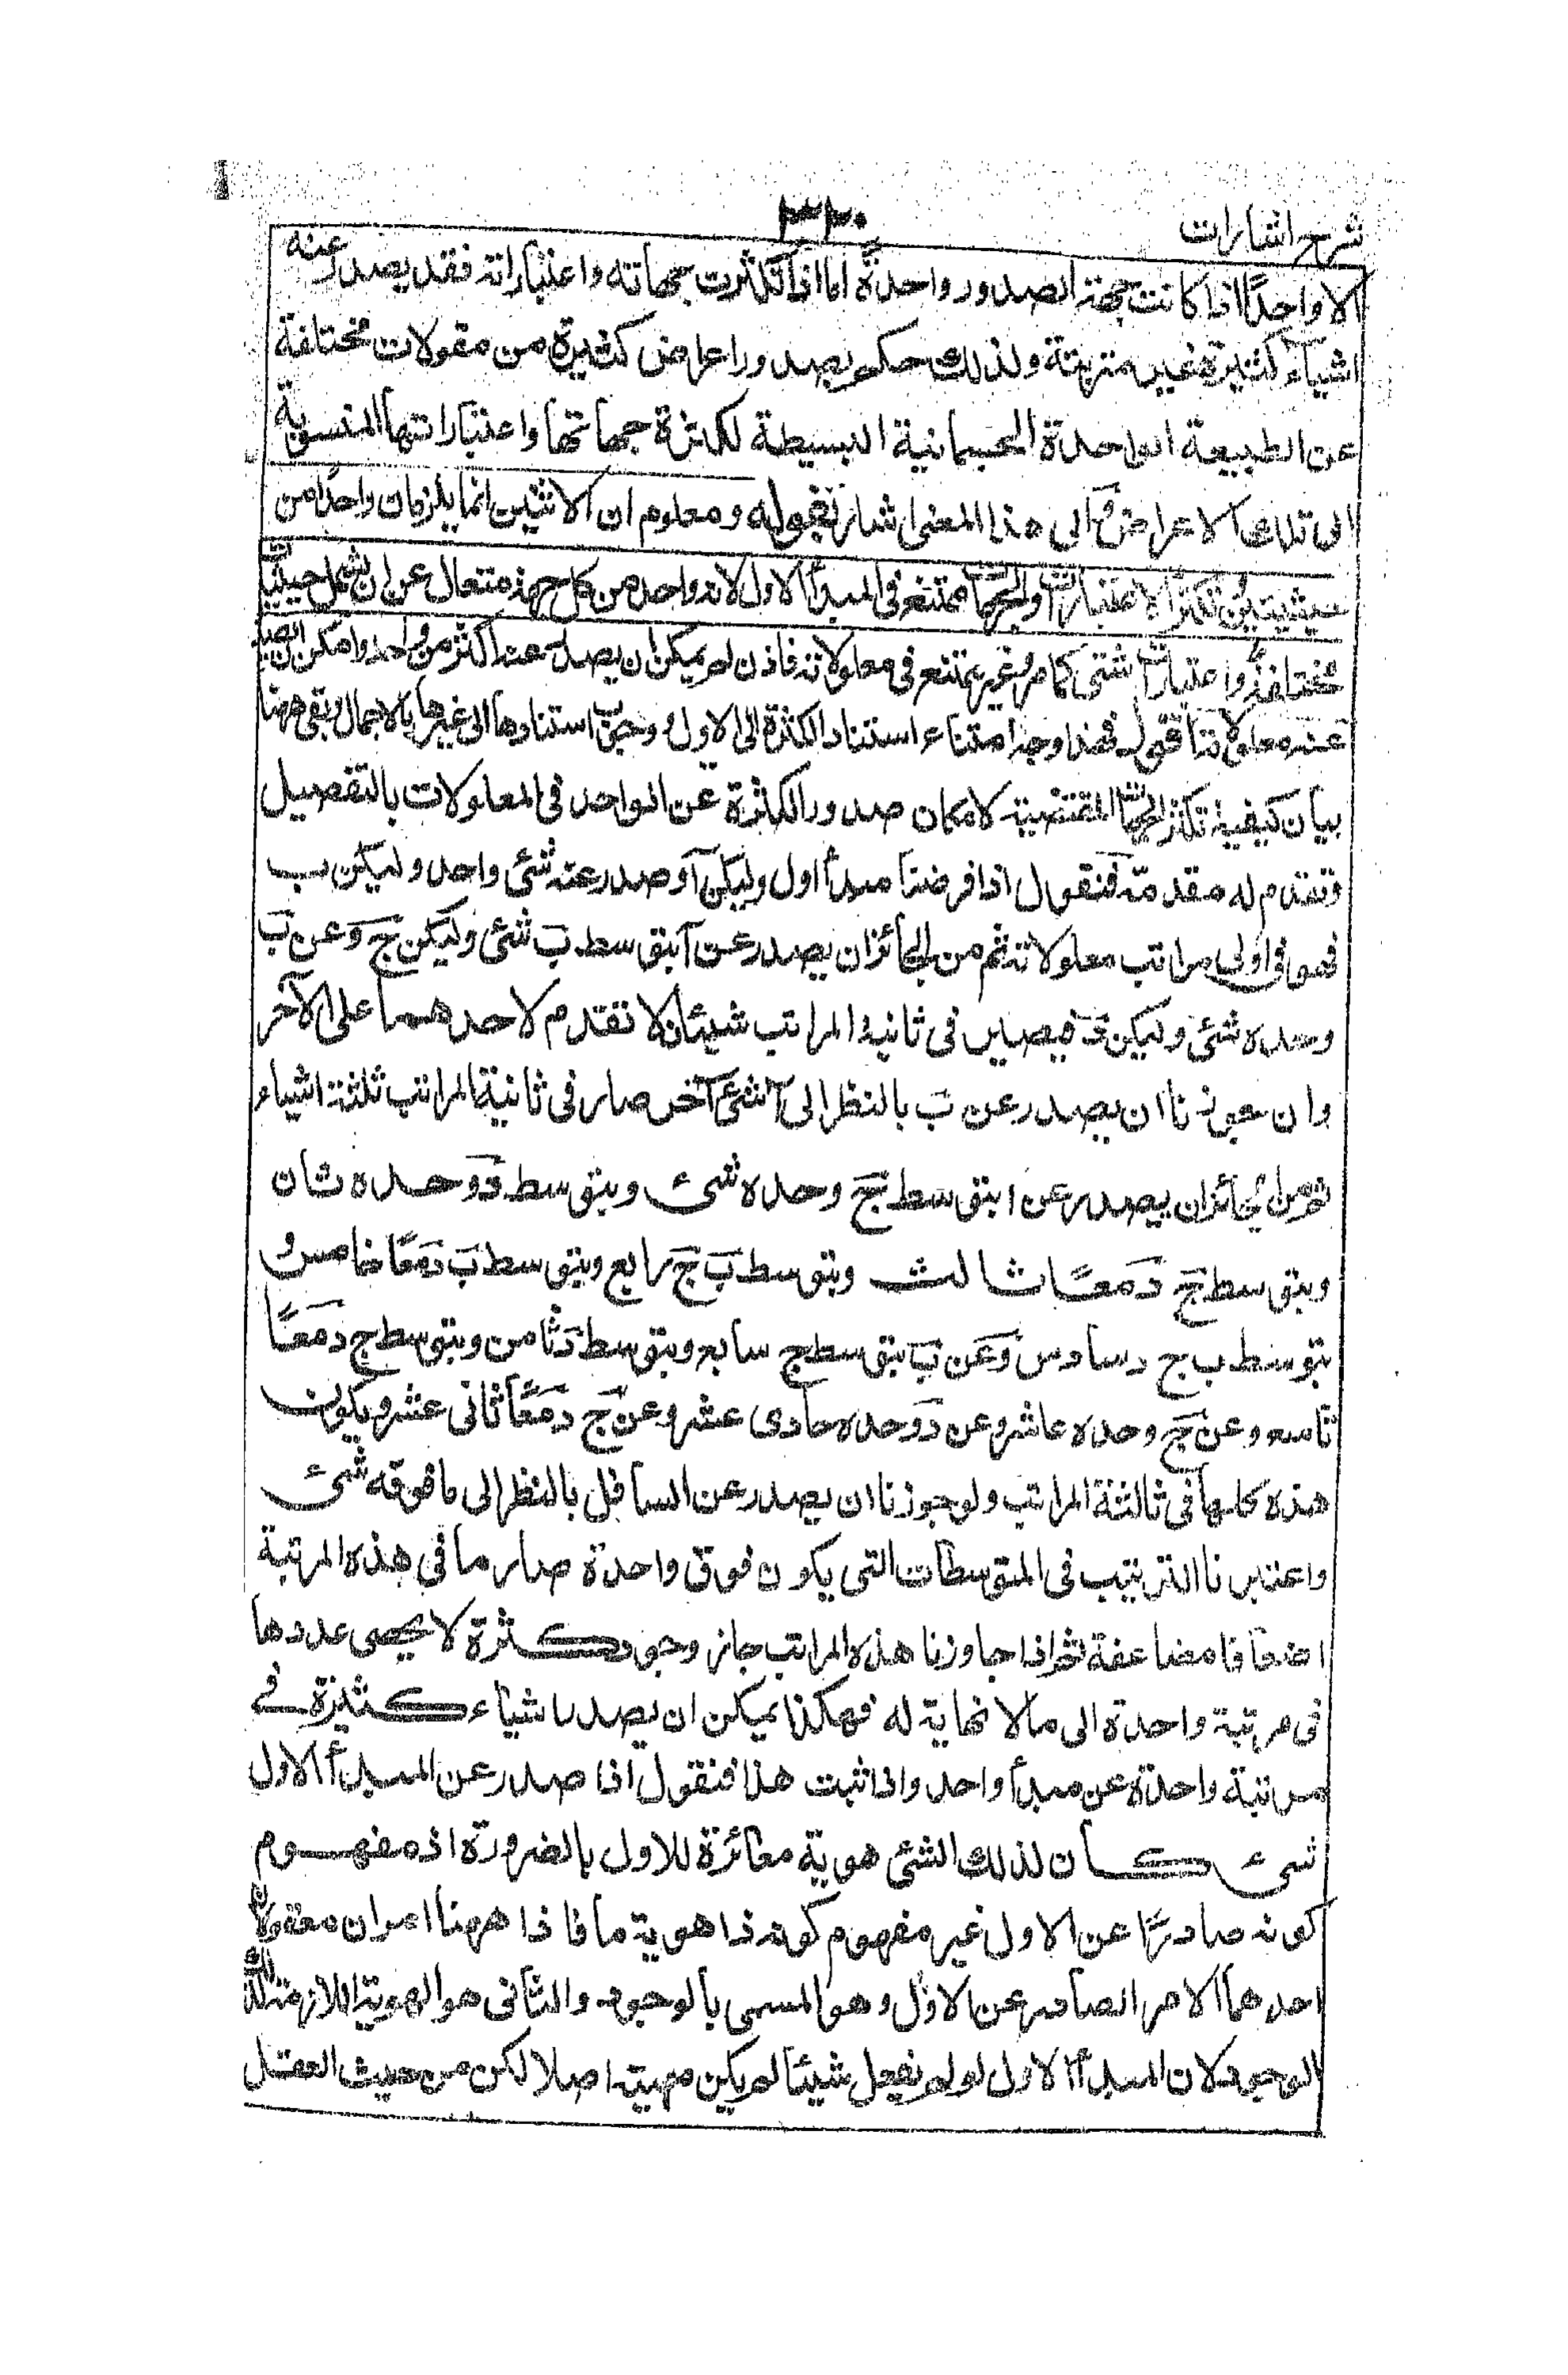 شرح اشارات
۳۳۰
الا واحدًا اذا كانت جهة الصدور واحدةً اما اذا تكثرت جهاته واعتباراته فقد يصدر عنه
اشياء كثيرة غير مترتبة ولذلك حكم بصدور اعراض كثيرة من مقولات مختلفة
عن الطبيعة الواحدة الجسمانية البسيطة لكثرة جهاتها واعتباراتها المنسوبة
الى تلك الاعراض والى هذا المعنى اشار بقوله ومعلوم ان الاثنين انما يلزمان واحدًا من
حيثيتين وتكثر الاعتبارات والجهات ممتنع فى المبدأ الاول لانه واحد من كل جهة متعال عن ان يشمل حيثيات
مختلفة واعتبارات شتى كما مر وغير ممتنع فى معلولاته فاذن لم يمكن ان يصدر عنه اكثر من واحد وامكن ان يصدر
عنه معلولاته اقول فهذا وجه امتناع استناد الكثرة الى الاول ووجوب استنادها الى غيرها بالاجمال وبقى ههنا
بيان كيفية تكثر الجهات المقتضية لامكان صدور الكثرة عن الواحد فى المعلولات بالتفصيل
ونقدم له مقدمة فنقول اذا فرضنا مبدأ اول وليكن آ وصدر عنه شئ واحد وليكن ب
فهو فى اولى مراتب معلولاته ثم من الجائز ان يصدر عن آ بتوسط ب شئ وليكن ج وعن ب
وحده شئ وليكن د فيصير فى ثانية المراتب شيئان لا تقدم لاحدهما على الآخر
وان جوزنا ان يصدر عن ب بالنظر الى آ شئ آخر صار فى ثانية المراتب ثلثة اشياء
ثم من الجائز ان يصدر عن ا بتوسط ج وحده شئ وبتوسط د وحده ثان
وبتوسط ج د معًا ثالث وبتوسط ب ج رابع وبتوسط ب د معًا خامس و
بتوسط ب ج د سادس وعن ب بتوسط ج سابع وبتوسط د ثامن وبتوسط ج د معًا
تاسع وعن ج وحده عاشر وعن د وحده حادى عشر وعن ج د معًا ثانى عشر ويكون
هذه كلها فى ثالثة المراتب ولو جوزنا ان يصدر عن السافل بالنظر الى ما فوقه شئ
واعتبرنا الترتيب فى المتوسطات التى يكون فوق واحدة صار ما فى هذه المرتبة
اضعافا مضاعفة ثم اذا جاوزنا هذه المراتب جاز وجود كثرة لا يحصى عددها
فى مرتبة واحدة الى ما لا نهاية له فهكذا يمكن ان يصدر اشياء كثيرة فى
مرتبة واحدة عن مبدأ واحد واذا ثبت هذا فنقول اذا صدر عن المبدأ الاول
شئ كان لذلك الشئ هوية مغائرة للاول بالضرورة اذ مفهوم
كونه صادرًا عن الاول غير مفهوم كونه ذا هوية ما فاذا ههنا امران معقولان
احدهما الامر الصادر عن الاول وهو المسمى بالوجود والثانى هو الهوية اللازمة لذلك
الوجود لان المبدأ الاول لو لم يفعل شيئا لم يكن مهية اصلا لكن من حيث العقل